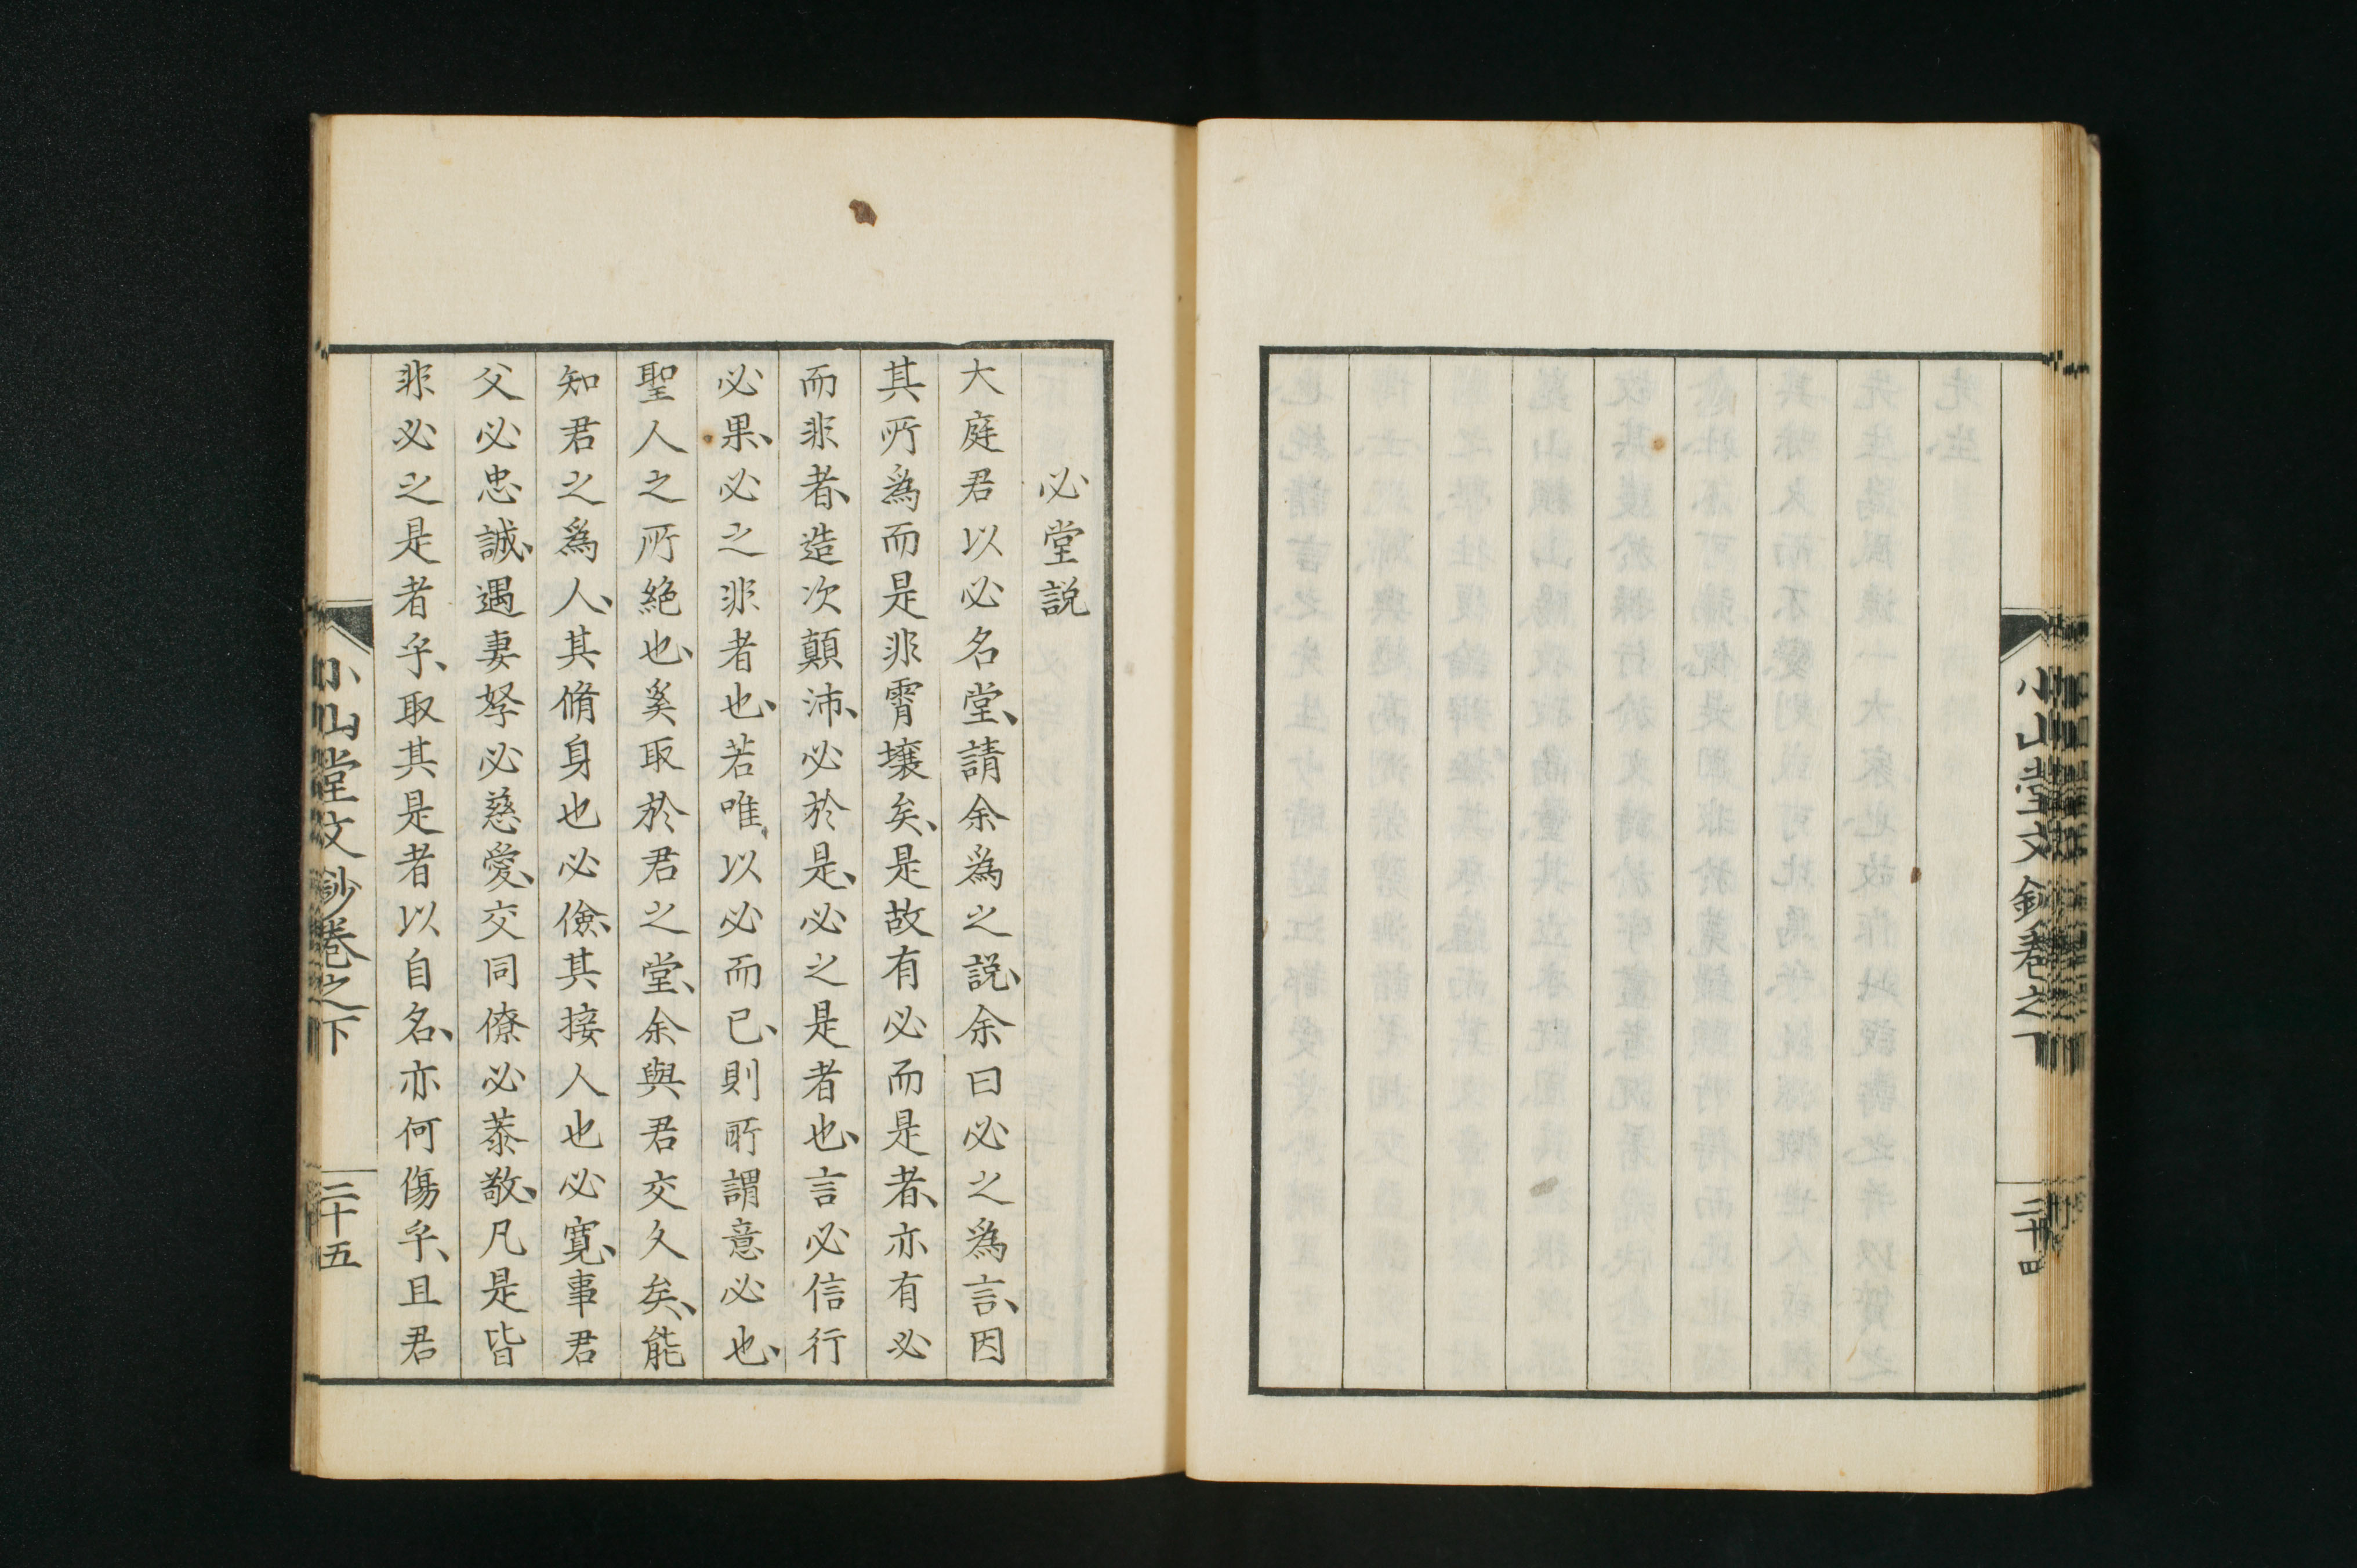 小山堂文鈔卷之下
二十四
必堂説
大庭君以必名堂、請余爲之説、余曰必之爲言、因
其所爲而是非霄壤矣、是故有必而是者、亦有必
而非者、造次顛沛、必於是、必之是者也、言必信行
必果、必之非者也、若唯以必而已、則所謂意必也、
聖人之所絕也、奚取於君之堂、余與君交久矣、能
知君之爲人、其脩身也必儉、其接人也必寬、事君
父必忠誠、遇妻孥必慈愛、交同僚必恭敬、凡是皆
非必之是者乎、取其是者以自名、亦何傷乎、且君
小山堂文鈔卷之下
二十五